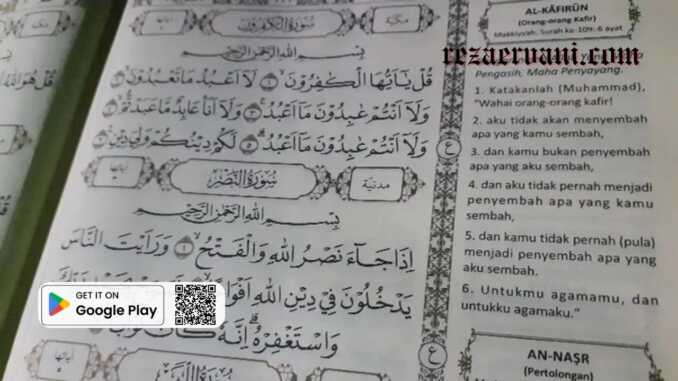 مكية
سُورَةُ الْكَافِرُونَ
آياتها
بِسْمِ اللهِ الرَّحْمٰنِ الرَّحِيْمِ
قُلْ يٰٓاَيُّهَا الْكٰفِرُوْنَۙ ١ لَآ اَعْبُدُ مَا تَعْبُدُوْنَۙ ٢
وَلَآ اَنْتُمْ عٰبِدُوْنَ مَآ اَعْبُدُۚ ٣ وَلَآ اَنَا۠ عَابِدٌ مَّا عَبَدْتُّمْۙ ٤
وَلَآ اَنْتُمْ عٰبِدُوْنَ مَآ اَعْبُدُۗ ٥ لَكُمْ دِيْنُكُمْ وَلِيَ دِيْنِ ٦
مدنية
سُورَةُ النَّصْرِ
آياتها
بِسْمِ اللهِ الرَّحْمٰنِ الرَّحِيْمِ
اِذَا جَاۤءَ نَصْرُ اللهِ وَالْفَتْحُۙ ١ وَرَاَيْتَ النَّاسَ
يَدْخُلُوْنَ فِيْ دِيْنِ اللهِ
وَاسْتَغْفِرْهُۗ اِنَّهٗ كَانَ
قُلْ هُوَ اللهُ
AL-KĀFIRŪN
(Orang-orang Kafir)
Makkiyyah, Surah ke-109: 6 ayat
rezaervani.com
Pengasih, Maha Penyayang.
1. Katakanlah (Muhammad),
"Wahai orang-orang kafir!
2. aku tidak akan menyembah
apa yang kamu sembah,
3. dan kamu bukan penyembah
apa yang aku sembah,
4. dan aku tidak pernah menjadi
penyembah apa yang kamu
sembah,
5. dan kamu tidak pernah (pula)
menjadi penyembah apa yang
aku sembah.
6. Untukmu agamamu, dan
untukku agamaku."
AN-NAṢR
(Pertolongan)
GET IT ON
Google Play